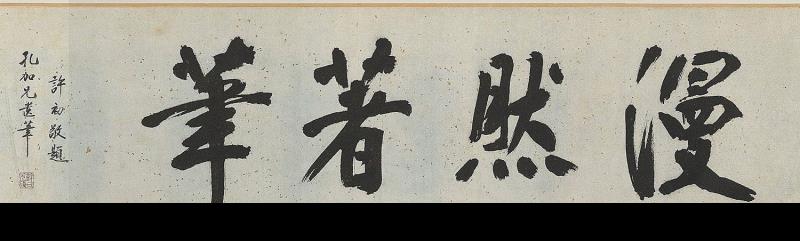 漫然著筆
孔加兄遺筆
許初敬題